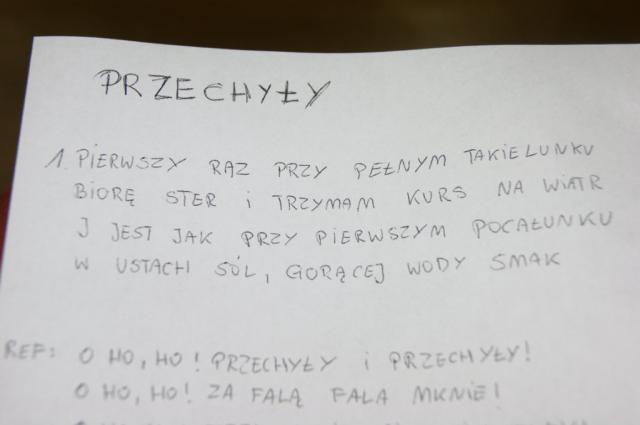 PRZECHYŁY
1. PIERWSZY RAZ PRZY PEŁNYM TAKIELUNKU
BIORĘ STER I TRZYMAM KURS NA WIATR
I JEST JAK PRZY PIERWSZYM POCAŁUNKU
W USTACH SÓL, GORĄCEJ WODY SMAK
REF: O HO, HO! PRZECHYŁY I PRZECHYŁY!
O HO, HO! ZA FALĄ FALA MKNIE!